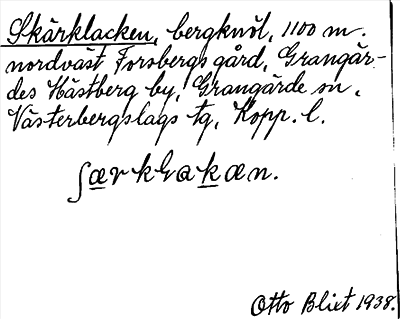 Skärklacken, bergknöl, 1100 m.
nordväst Forsbergs gård, Grangär-
des Hästberg by, Grangärde sn,
Västerbergslags tg, Kopp. l.
ʃærkɽakæn.
Otto Blixt 1938.